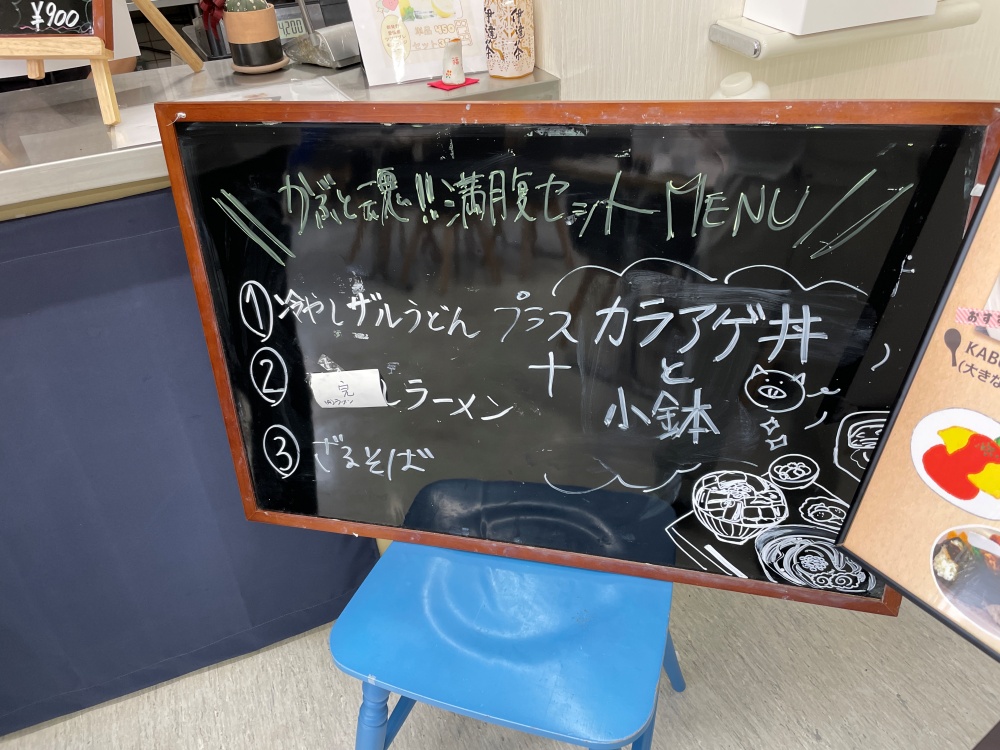 ¥900
4200
かぶと魂!!満腹セットMENU
①冷やしザルうどん
プラス
カラアゲ丼
②
完
しラーメン
+
と
小鉢
③ざるそば
おすす
KAB
(大きな